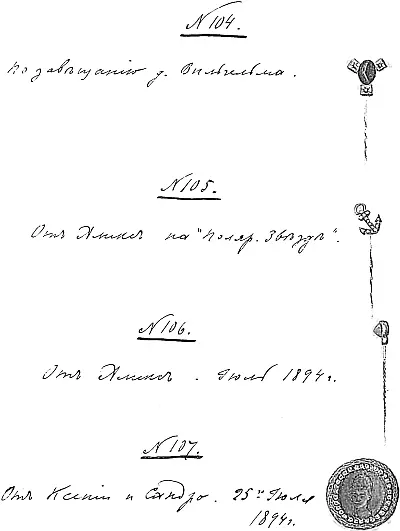 № 104.
по завѣщанію д. Вильгельма.
№ 105.
Отъ Аликсъ на "Поляр. Звѣздѣ".
№ 106.
Отъ Аликсъ. Іюль 1894 г.
№ 107.
Отъ Ксеніи и Сандро. 25го Іюля
1894 г.